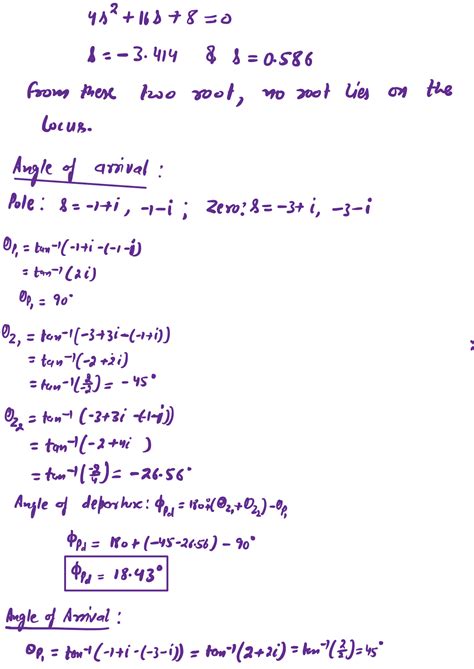 4s² + 16s + 8 = 0
s = -3.414 & s = 0.586
from these two root, no root lies on the
locus.
Angle of arrival :
Pole: s = -1+i, -1-i ; Zero: s = -3+i, -3-i
θp₁ = tan⁻¹(-1+i-(-1-i))
= tan⁻¹(2i)
θp₁ = 90°
θz₁ = tan⁻¹(-3+3i-(-1+i))
= tan⁻¹(-2+2i)
= tan⁻¹(2/-2) = -45°
θz₂ = tan⁻¹(-3+3i-(-1-i))
= tan⁻¹(-2+4i)
= tan⁻¹(-2/4) = -26.56°
Angle of departure: ϕpd = 180+(θz₁+θz₂)-θp₁
ϕpd = 180+(-45-26.56)-90°
ϕpd = 18.43°
Angle of Arrival :
θp₁ = tan⁻¹(-1+i-(-3-i)) = tan⁻¹(2+2i) = tan⁻¹(2/2) = 45°